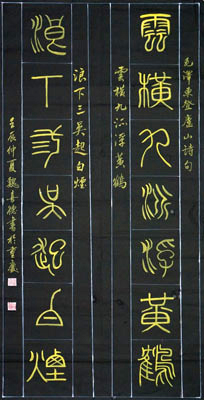 毛澤東登廬山詩句
雲橫九派浮黃鶴
雲橫九派浮黃鶴
浪下三吳起白煙
浪下三吳起白煙
壬辰仲夏魏喜德書於重慶